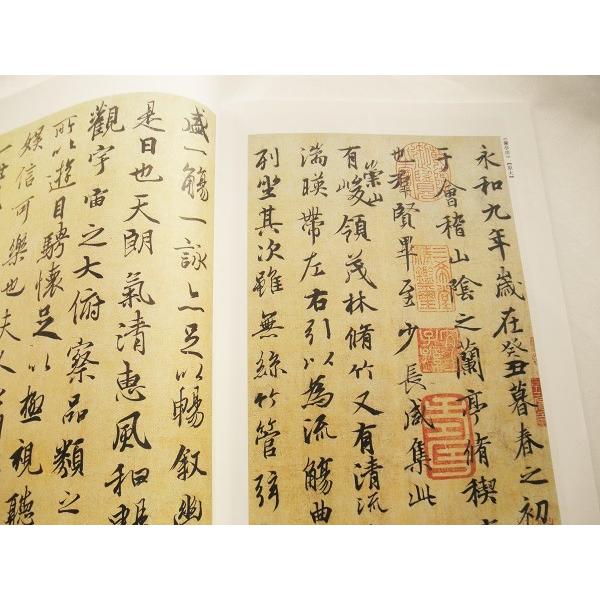 永和九年歲在癸丑暮春之初
于會稽山陰之蘭亭脩稧
也羣賢畢至少長咸集此
有崇山峻領茂林脩竹又有清流
湍暎帶左右引以為流觴曲
列坐其次雖無絲竹管弦
盛一觴一詠亦足以暢叙幽
是日也天朗氣清惠風和暢
觀宇宙之大俯察品類之
所以遊目騁懷足以極視聽
娛信可樂也夫人